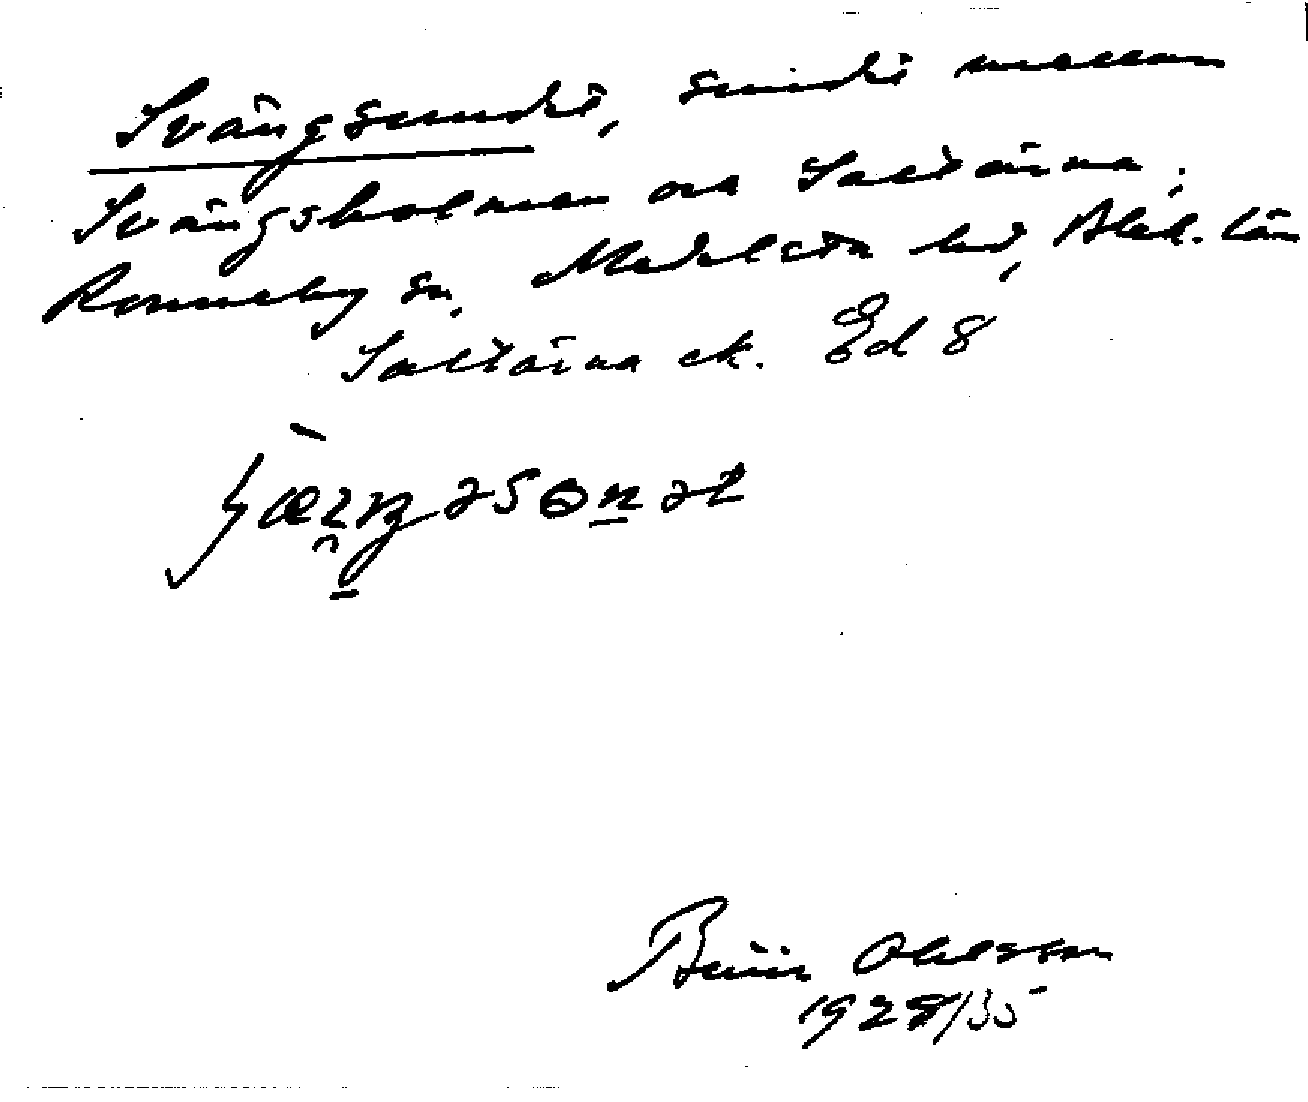 Svängsundet, sundet mellan
Svängsholmen och Saltärna,
Ronneby sn, Medelsta hd, Blek. län
Saltärna ek. Ed 8
Bror Ohlsson
1928/35